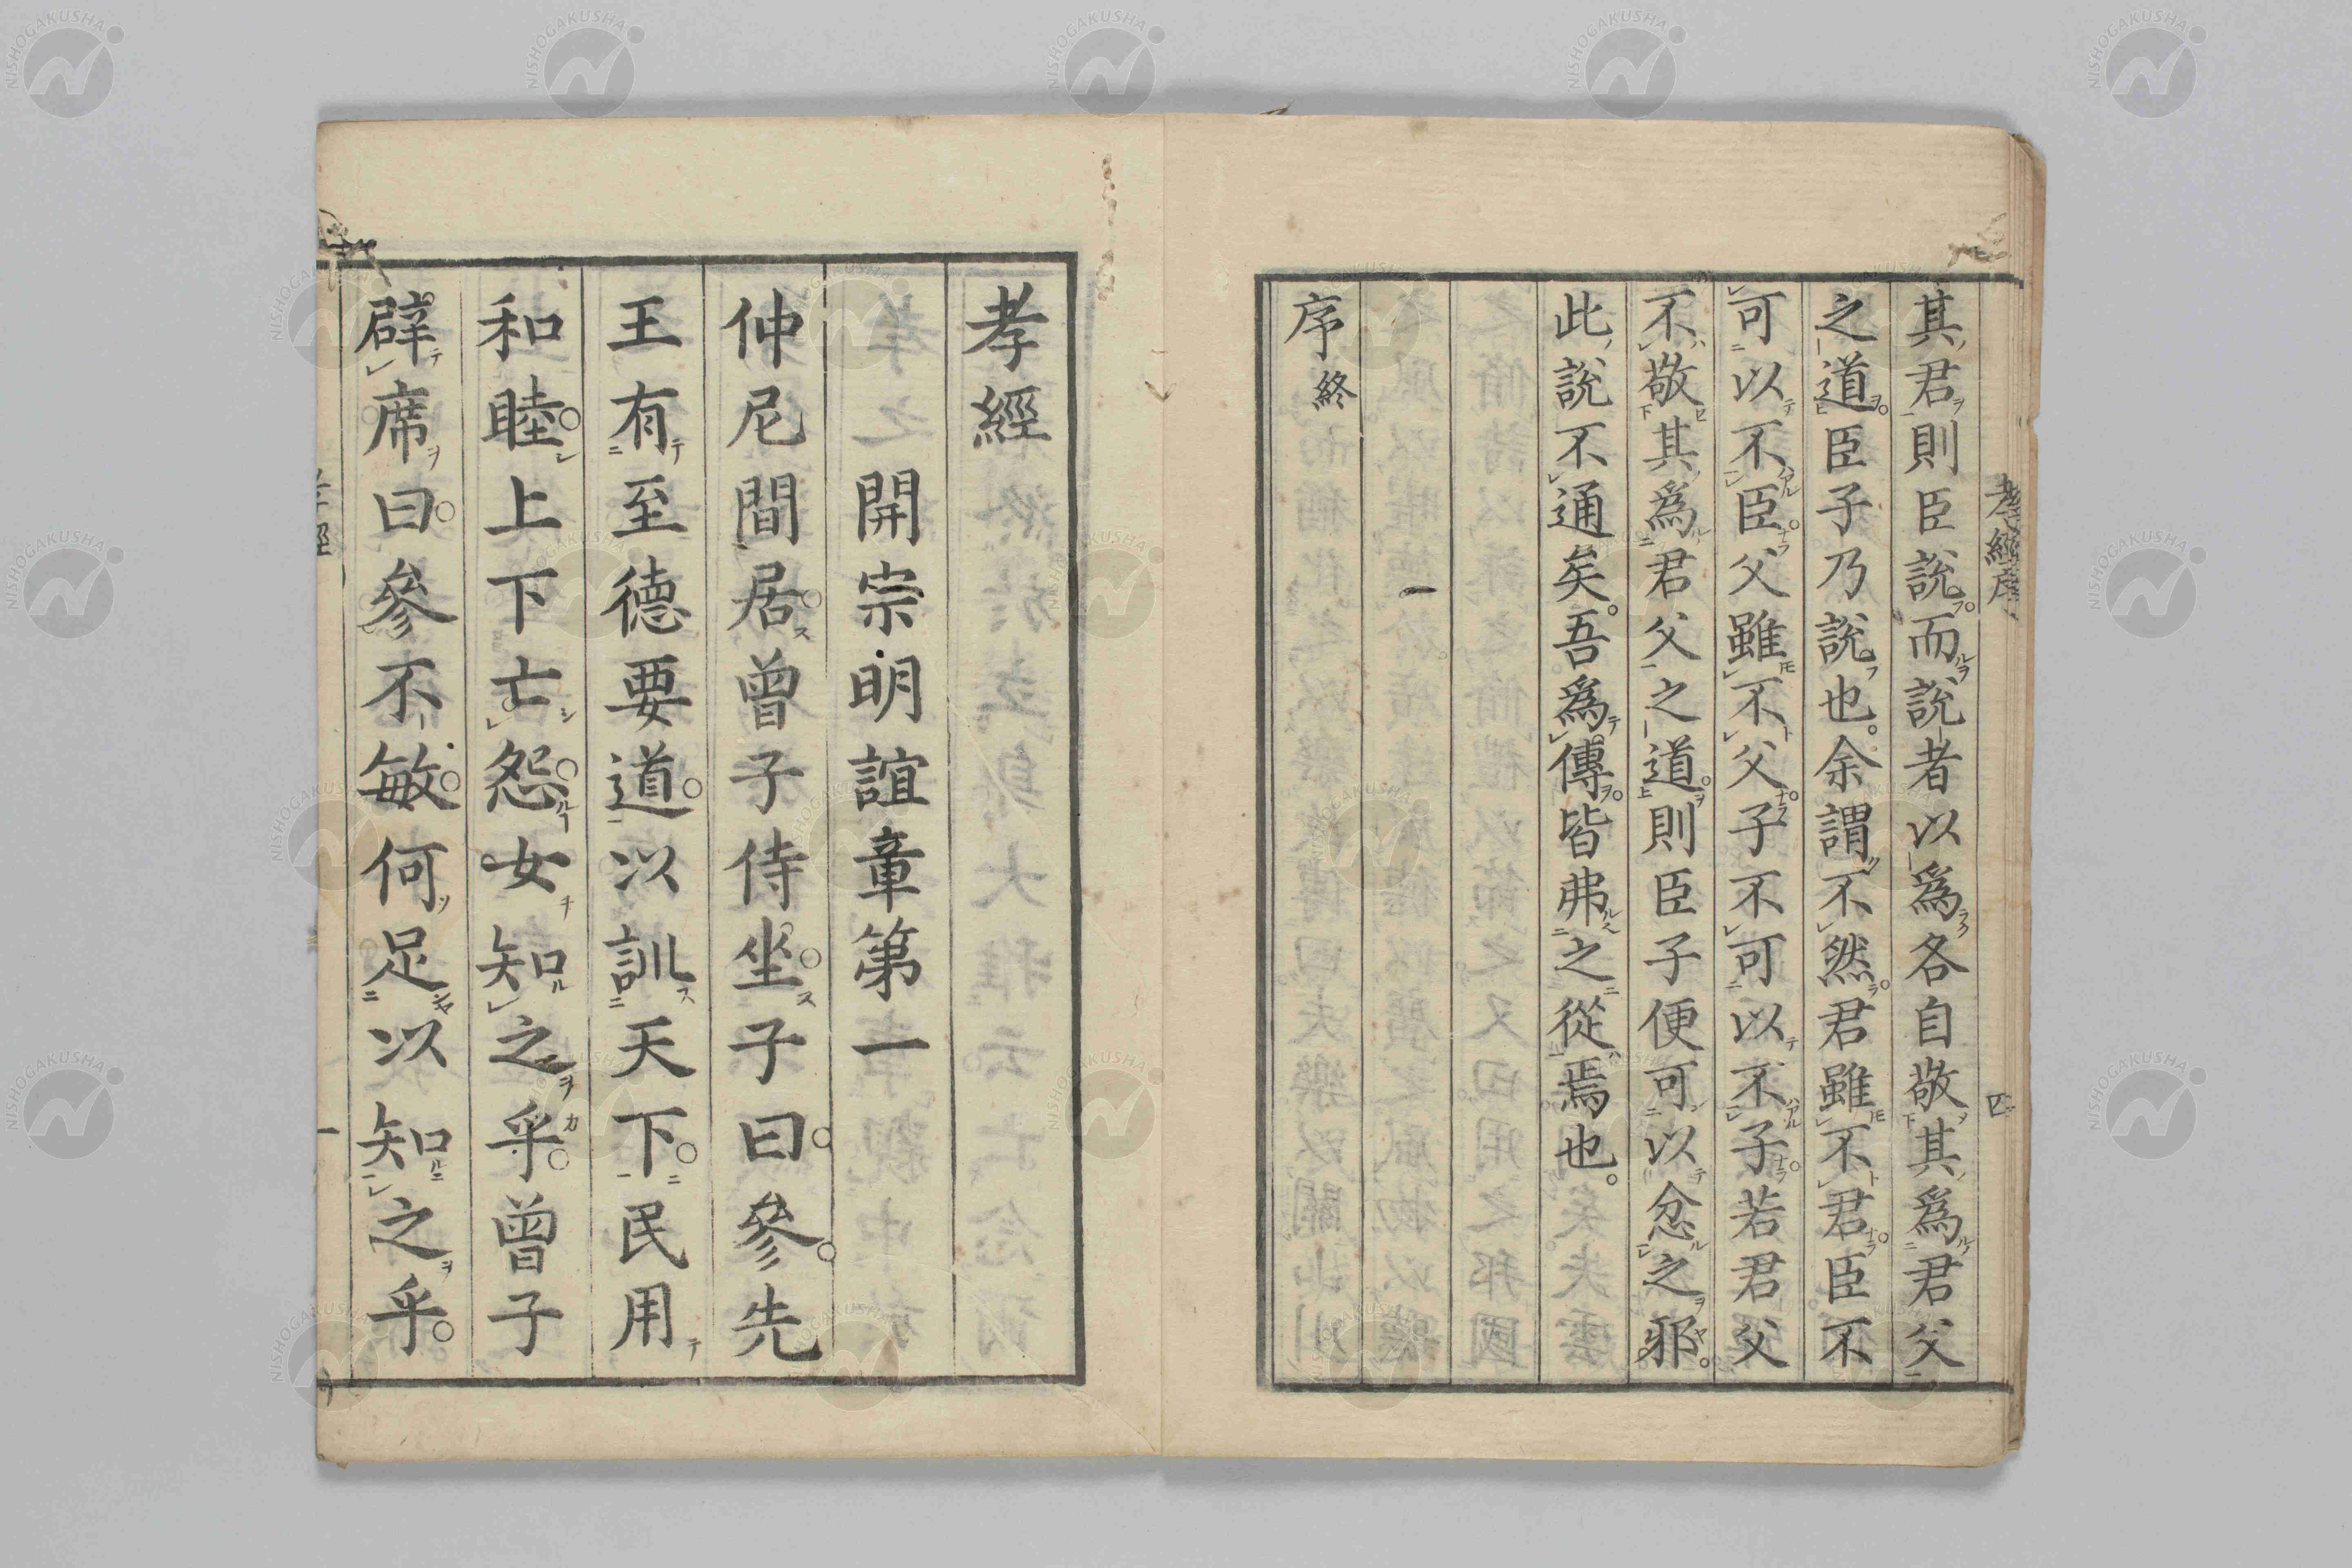 孝經序
四
其君則臣說而說者以爲各自敬其爲君父
之道臣子乃說也余謂不然君雖不君臣不
可以不臣父雖不父子不可以不子若君父
不敬其爲君父之道則臣子便可以忿之邪
此說不通矣吾爲傳皆弗之從焉也
序終
孝經
開宗明誼章第一
仲尼閒居曾子侍坐子曰參先
王有至德要道以訓天下民用
和睦上下亡怨女知之乎曾子
辟席曰參不敏何足以知之乎
一
NISHOGAKUSHA